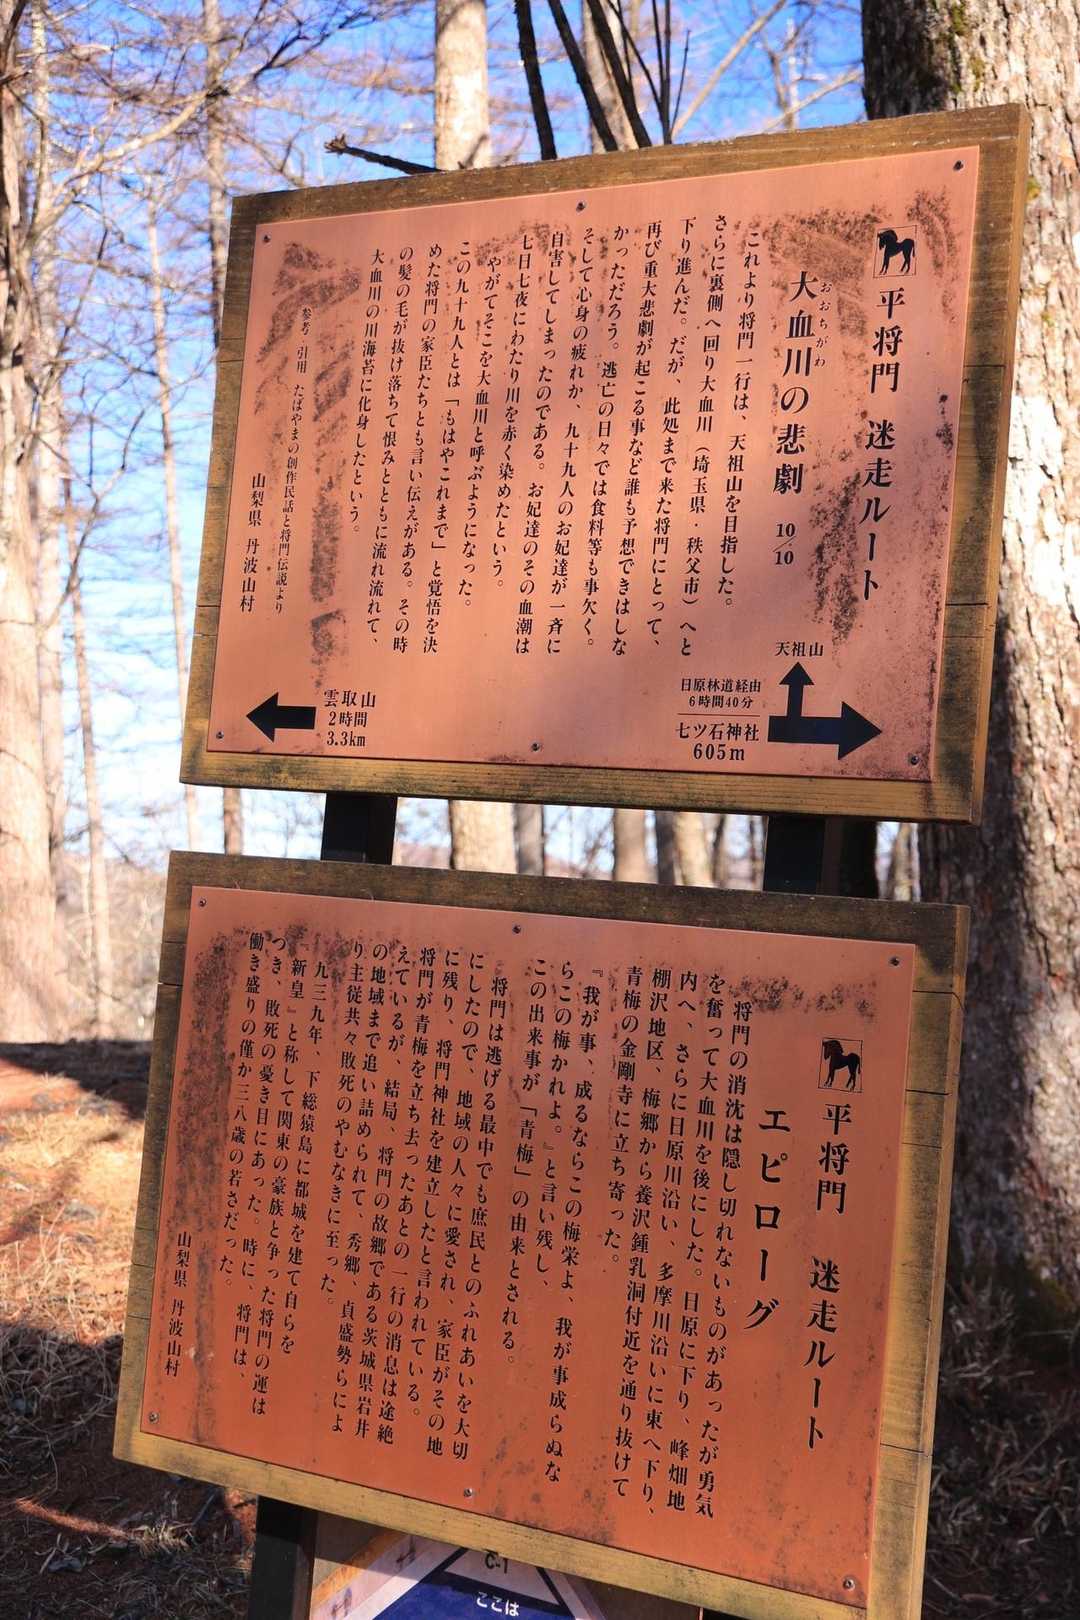 平将門 迷走ルート
大血川の悲劇 10/10
おおちがわ
これより将門一行は、天祖山を目指した。
さらに裏側へ回り大血川（埼玉県・秩父市）へと
下り進んだ。だが、此処まで来た将門にとって、
再び重大悲劇が起こる事など誰も予想できはしな
かっただろう。逃亡の日々では食料等も事欠く。
そして心身の疲れか、九十九人のお妃達が一斉に
自害してしまったのである。お妃達のその血潮は
七日七夜にわたり川を赤く染めたという。
やがてそこを大血川と呼ぶようになった。
この九十九人とは「もはやこれまで」と覚悟を決
めた将門の家臣たちとも言い伝えがある。その時
の髪の毛が抜け落ちて恨みとともに流れ流れて、
大血川の川海苔に化身したという。
参考・引用 たばやまの創作民話と将門伝説より
山梨県 丹波山村
雲取山
2時間
3.3km
天祖山
日原林道経由
6時間40分
七ツ石神社
605m
平将門 迷走ルート
エピローグ
将門の消沈は隠し切れないものがあったが勇気
を奮って大血川を後にした。日原に下り、峰畑地
内へ、さらに日原川沿い、多摩川沿いに東へ下り、
棚沢地区、梅郷から養沢鍾乳洞付近を通り抜けて
青梅の金剛寺に立ち寄った。
『我が事、成るならこの梅栄よ、我が事成らぬな
らこの梅かれよ。』と言い残し、
この出来事が「青梅」の由来とされる。
将門は逃げる最中でも庶民とのふれあいを大切
にしたので、地域の人々に愛され、家臣がその地
に残り、将門神社を建立したと言われている。
将門が青梅を立ち去ったあとの一行の消息は途絶
えているが、結局、将門の故郷である茨城県岩井
の地域まで追い詰められて、秀郷、貞盛勢らによ
り主従共々敗死のやむなきに至った。
九三九年、下総猿島に都城を建て自らを
『新皇』と称して関東の豪族と争った将門の運は
つき、敗死の憂き目にあった。時に、将門は、
働き盛りの僅か三八歳の若さだった。
山梨県 丹波山村
C-1
ここは